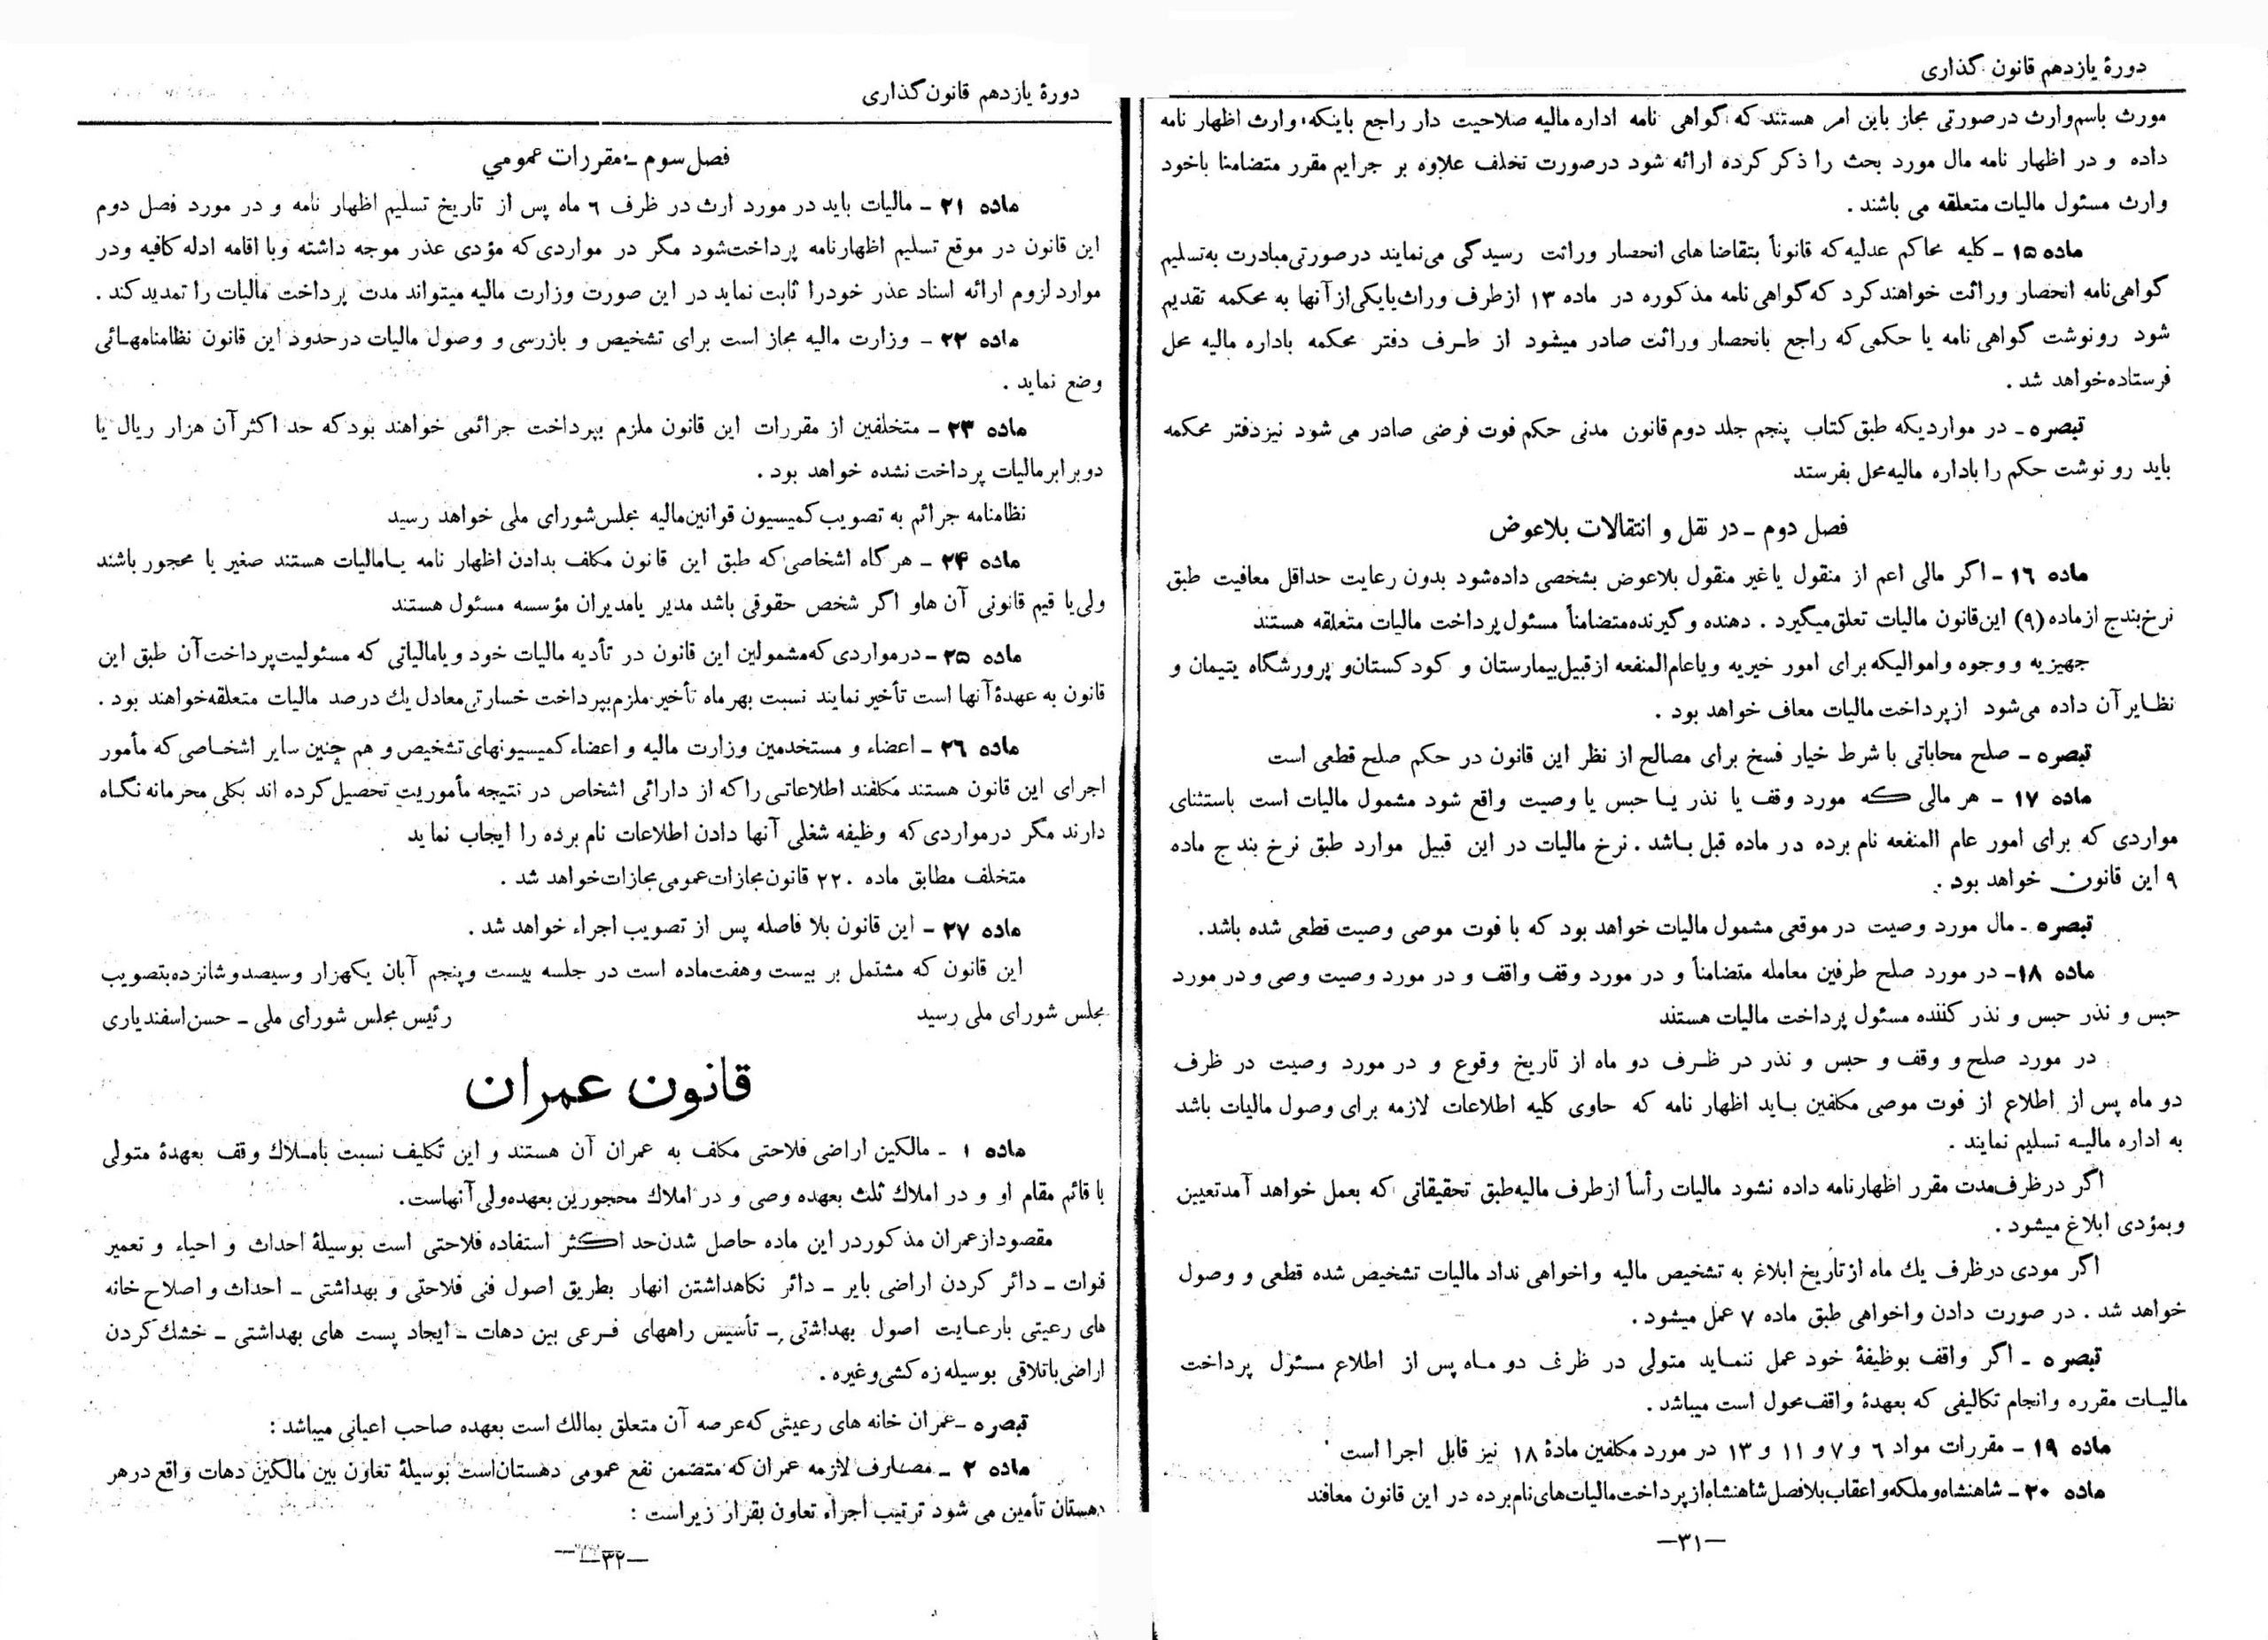 دورهٔ یازدهم قانون گذاری
مورث باسم وارث درصورتی مجاز باین امر هستند که گواهی نامه اداره مالیه صلاحیت دار راجع باینکه وارث اظهار نامه
داده و در اظهار نامه مال مورد بحث را ذکر کرده ارائه شود درصورت تخلف علاوه بر جرایم مقرر متضامنا باخود
وارث مسئول مالیات متعلقه می باشند .
ماده ۱۵ – کلیه محاکم عدلیه که قانوناً بتقاضا های انحصار وراثت رسیدگی می‌نمایند درصورتی مبادرت به تسلیم
گواهی نامه انحصار وراثت خواهند کرد که گواهی نامه مذکوره در ماده ۱۳ از طرف وراث یا یکی از آنها به محکمه تقدیم
شود رونوشت گواهی نامه یا حکمی که راجع بانحصار وراثت صادر میشود از طرف دفتر محکمه باداره مالیه محل
فرستاده خواهد شد .
تبصره – در مواردیکه طبق کتاب پنجم جلد دوم قانون مدنی حکم فوت فرضی صادر می شود نیز دفتر محکمه
باید رو نوشت حکم را باداره مالیه محل بفرستد
فصل دوم – در نقل و انتقالات بلاعوض
ماده ۱۶ – اگر مالی اعم از منقول یا غیر منقول بلاعوض بشخصی داده شود بدون رعایت حداقل معافیت طبق
نرخ بند ج از ماده (۹) این قانون مالیات تعلق میگیرد . دهنده و گیرنده متضامناً مسئول پرداخت مالیات متعلقه هستند
جهیزیه و وجوه و اموالیکه برای امور خیریه و یا عام المنفعه از قبیل بیمارستان و کودکستان و پرورشگاه یتیمان و
نظایر آن داده می‌شود از پرداخت مالیات معاف خواهد بود .
تبصره – صلح محاباتی با شرط خیار فسخ برای مصالح از نظر این قانون در حکم صلح قطعی است
ماده ۱۷ – هر مالی که مورد وقف یا نذر یا حبس یا وصیت واقع شود مشمول مالیات است باستثنای
مواردی که برای امور عام المنفعه نام برده در ماده قبل باشد . نرخ مالیات در این قبیل موارد طبق نرخ بند ج ماده
۹ این قانون خواهد بود .
تبصره – مال مورد وصیت در موقعی مشمول مالیات خواهد بود که با فوت موصی وصیت قطعی شده باشد.
ماده ۱۸– در مورد صلح طرفین معامله متضامناً و در مورد وقف واقف و در مورد وصیت وصی و در مورد
حبس و نذر حبس و نذر کننده مسئول پرداخت مالیات هستند
در مورد صلح و وقف و حبس و نذر در ظرف دو ماه از تاریخ وقوع و در مورد وصیت در ظرف
دو ماه پس از اطلاع از فوت موصی مکلفین باید اظهار نامه که حاوی کلیه اطلاعات لازمه برای وصول مالیات باشد
به اداره مالیه تسلیم نمایند .
اگر در ظرف مدت مقرر اظهارنامه داده نشود مالیات رأساً از طرف مالیه طبق تحقیقاتی که بعمل خواهد آمد تعیین
و بمؤدی ابلاغ میشود .
اگر مودی در ظرف یك ماه از تاریخ ابلاغ به تشخیص مالیه واخواهی نداد مالیات تشخیص شده قطعی و وصول
خواهد شد . در صورت دادن واخواهی طبق ماده ۷ عمل میشود .
تبصره – اگر واقف بوظیفهٔ خود عمل ننماید متولی در ظرف دو ماه پس از اطلاع مسئول پرداخت
مالیات مقرره و انجام تکالیفی که بعهدهٔ واقف محول است میباشد .
ماده ۱۹ – مقررات مواد ۶ و ۷ و ۱۱ و ۱۳ در مورد مکلفین مادهٔ ۱۸ نیز قابل اجرا است
ماده ۲۰ – شاهنشاه و ملکه و اعقاب بلافصل شاهنشاه از پرداخت مالیات‌های نام برده در این قانون معافند
—۳۱—
دورهٔ یازدهم قانون گذاری
فصل سوم – مقررات عمومي
ماده ۲۱ – مالیات باید در مورد ارث در ظرف ۶ ماه پس از تاریخ تسلیم اظهار نامه و در مورد فصل دوم
این قانون در موقع تسلیم اظهارنامه پرداخت شود مگر در مواردی که مؤدی عذر موجه داشته و با اقامه ادله کافیه و در
موارد لزوم ارائه اسناد عذر خود را ثابت نماید در این صورت وزارت مالیه میتواند مدت پرداخت مالیات را تمدید کند .
ماده ۲۲ – وزارت مالیه مجاز است برای تشخیص و بازرسی و وصول مالیات در حدود این قانون نظامنامهائی
وضع نماید .
ماده ۲۳ – متخلفین از مقررات این قانون ملزم بپرداخت جرائمی خواهند بود که حد اکثر آن هزار ریال یا
دو برابر مالیات پرداخت نشده خواهد بود .
نظامنامه جرائم به تصویب کمیسیون قوانین مالیه مجلس شورای ملی خواهد رسید
ماده ۲۴ – هر گاه اشخاصی که طبق این قانون مکلف بدادن اظهار نامه یا مالیات هستند صغیر یا محجور باشند
ولی یا قیم قانونی آن ها و اگر شخص حقوقی باشد مدیر یا مدیران مؤسسه مسئول هستند
ماده ۲۵ – در مواردی که مشمولین این قانون در تأدیه مالیات خود و یا مالیاتی که مسئولیت پرداخت آن طبق این
قانون به عهدهٔ آنها است تأخیر نمایند نسبت بهر ماه تأخیر ملزم بپرداخت خسارتی معادل یك درصد مالیات متعلقه خواهند بود .
ماده ۲۶ – اعضاء و مستخدمین وزارت مالیه و اعضاء کمیسیونهای تشخیص و هم چنین سایر اشخاصی که مأمور
اجرای این قانون هستند مکلفند اطلاعاتی را که از دارائی اشخاص در نتیجه مأموریت تحصیل کرده اند بکلی محرمانه نگاه
دارند مگر در مواردی که وظیفه شغلی آنها دادن اطلاعات نام برده را ایجاب نماید
متخلف مطابق ماده ۲۲۰ قانون مجازات عمومی مجازات خواهد شد .
ماده ۲۷ – این قانون بلا فاصله پس از تصویب اجراء خواهد شد .
این قانون که مشتمل بر بیست و هفت ماده است در جلسه بیست و پنجم آبان یکهزار و سیصد و شانزده بتصویب
مجلس شورای ملی رسید رئیس مجلس شورای ملی – حسن اسفندیاری
قانون عمران
ماده ۱ – مالکین اراضی فلاحتی مکلف به عمران آن هستند و این تکلیف نسبت باملاك وقف بعهدهٔ متولی
با قائم مقام او و در املاك ثلث بعهده وصی و در املاك محجورین بعهده ولی آنهاست.
مقصود از عمران مذکور در این ماده حاصل شدن حد اکثر استفاده فلاحتی است بوسیلهٔ احداث و احیاء و تعمیر
قنوات – دائر کردن اراضی بایر – دائر نگاهداشتن انهار بطریق اصول فنی فلاحتی و بهداشتی – احداث و اصلاح خانه
های رعیتی بارعایت اصول بهداشتی – تأسیس راههای فرعی بین دهات – ایجاد پست های بهداشتی – خشك کردن
اراضی باتلاقی بوسیله زه کشی و غیره .
تبصره – عمران خانه های رعیتی که عرصه آن متعلق بمالك است بعهده صاحب اعیانی میباشد :
ماده ۲ – مصارف لازمه عمران که متضمن نفع عمومی دهستان است بوسیلهٔ تعاون بین مالکین دهات واقع در هر
دهستان تأمین می شود ترتیب اجراء تعاون بقرار زیر است :
—۳۲—